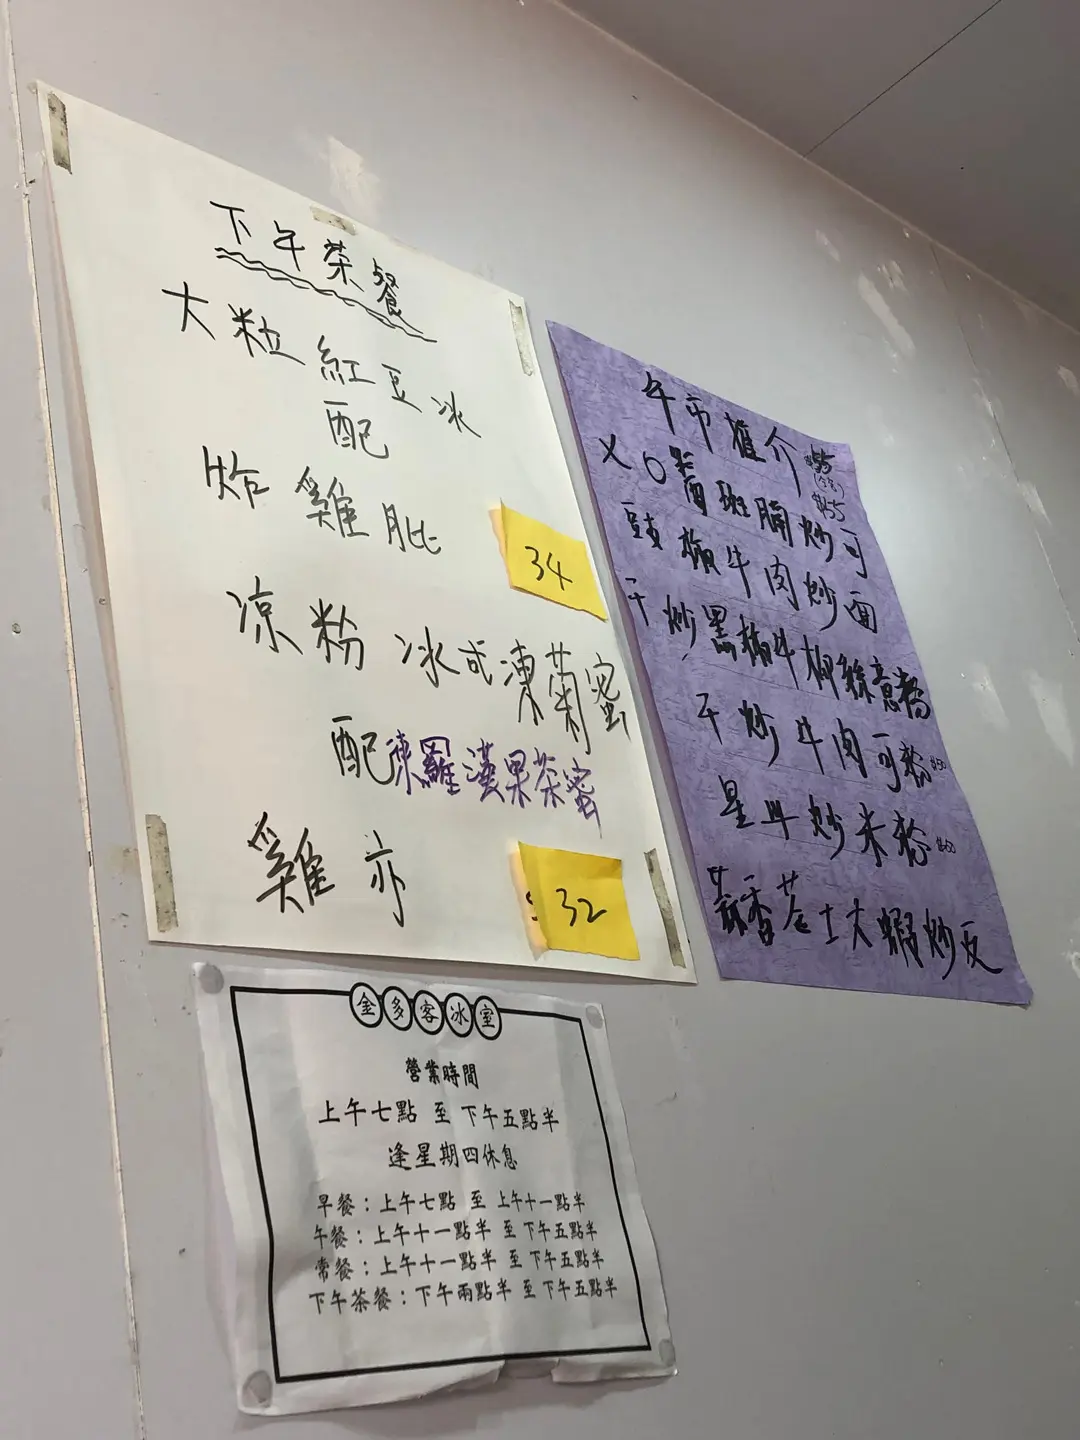 下午茶餐
大粒紅豆冰
配
炸雞肶
34
凉粉冰或凍菊蜜
配凍羅漢果茶蜜
雞亦
32
午市推介
XO醬班腩炒可
豉椒牛肉炒面
干炒黑椒牛柳絲意粉
干炒牛肉可粉 $50
星洲炒米粉
蒜香芝士大蝦炒反
金多客冰室
營業時間
上午七點 至 下午五點半
逢星期四休息
早餐：上午七點 至 上午十一點半
午餐：上午十一點半 至 下午五點半
常餐：上午十一點半 至 下午五點半
下午茶餐：下午兩點半 至 下午五點半